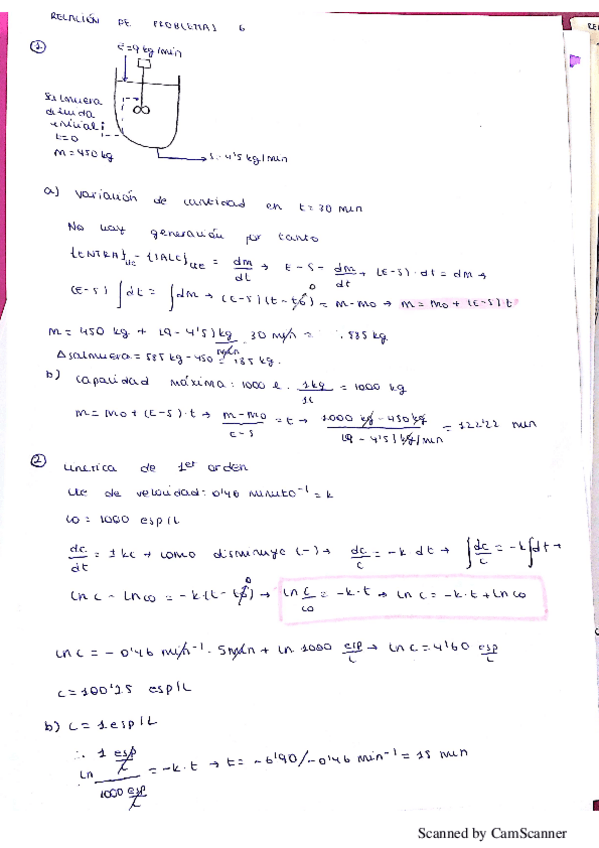 RELACIÓN DE PROBLEMAS 6
①
E=9 kg/min
Salmuera
diluida
inicial
t=0
m=450 kg
S=4'5 kg/min
a) variación de cantidad en t=30 min
No hay generación por tanto
= dm/dt → E-S = dm/dt → (E-S)·dt = dm →
(E-S) ∫dt = ∫dm → (E-S)(t-t0) = m-m0 → m = m0 + (E-S)t
m = 450 kg + (9-4'5) kg/min · 30 min = 585 kg
Δsalmuera = 585 kg - 450 = 135 kg.
b) capacidad máxima: 1000 l · 1kg/1l = 1000 kg
m = m0 + (E-S)·t → m-m0/E-S = t → 1000 kg - 450 kg/(9-4'5) kg/min = 122'22 min
②
cinética de 1er orden
cte de velocidad: 0'46 minuto⁻¹ = k
c0 = 1000 esp/L
dc/dt = ±kc → como disminuye (-) → dc/c = -k dt → ∫dc/c = -k∫dt →
ln c - ln c0 = -k(t-t0) → ln c/c0 = -k·t → ln c = -k·t + ln c0
ln c = -0'46 min⁻¹ · 5 min + ln 1000 esp/L → ln c = 4'60 esp/L
c = 100'25 esp/L
b) c = 1 esp/L
∴ ln 1 esp/L/1000 esp/L = -k·t → t = -6'90/-0'46 min⁻¹ = 15 min
Scanned by CamScanner